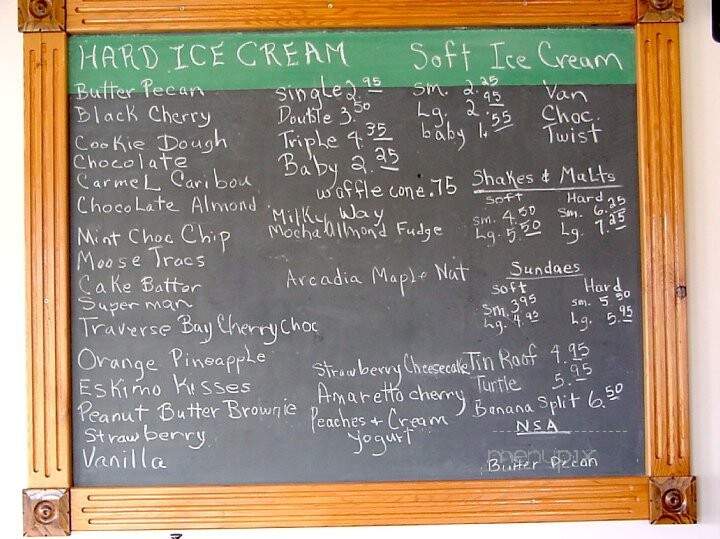 HARD ICE CREAM
Butter Pecan
Black Cherry
Cookie Dough
Chocolate
Carmel Caribou
Chocolate Almond
Mint Choc Chip
Moose Tracs
Cake Batter
Superman
Traverse Bay Cherry Choc
Orange Pineapple
Eskimo Kisses
Peanut Butter Brownie
Strawberry
Vanilla
Single 2.95
Double 3.50
Triple 4.35
Baby 2.25
waffle cone .75
Milky Way
Mocha Almond Fudge
Arcadia Maple Nut
Strawberry Cheesecake
Amaretto cherry
Peaches + Cream
Yogurt
Soft Ice Cream
Sm. 2.25
Lg. 2.45
baby 1.55
Van
Choc.
Twist
Shakes & Malts
Soft
Sm. 4.50
Lg. 5.50
Hard
Sm. 6.25
Lg. 7.25
Sundaes
Soft
Sm. 3.95
Lg. 4.95
Hard
Sm. 5.50
Lg. 5.95
Tin Roof 4.95
Turtle 5.95
Banana Split 6.50
NSA
menupix
Butter Pecan